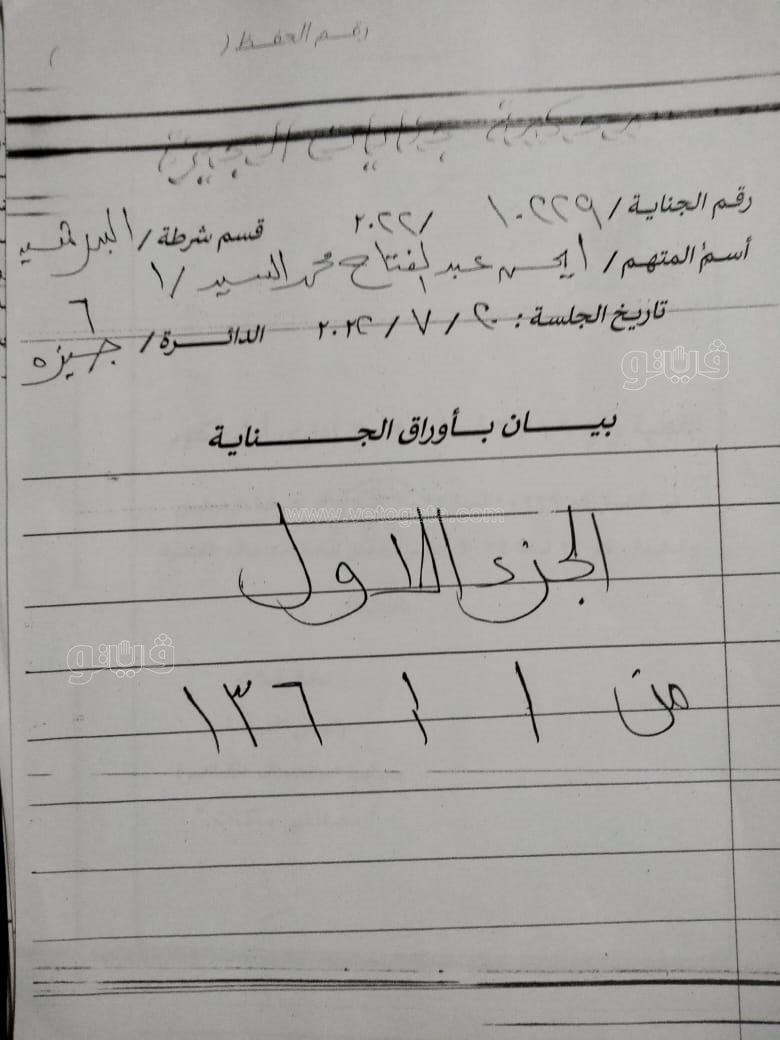 رقم الحفظ ( )
رقم الجناية / ١٠٢٢٩ / ٢٠٢٢ قسم شرطة /
أسم المتهم / ايمن عبد الفتاح محمد السيد / ١
تاريخ الجلسة : ٢٠ / ٧ / ٢٠٢٤ الدائرة / ٦ جيزه
فيتو
بيان بأوراق الجناية
www.vetogate.com
الجزء الاول
فيتو
من ١ ١٣٦